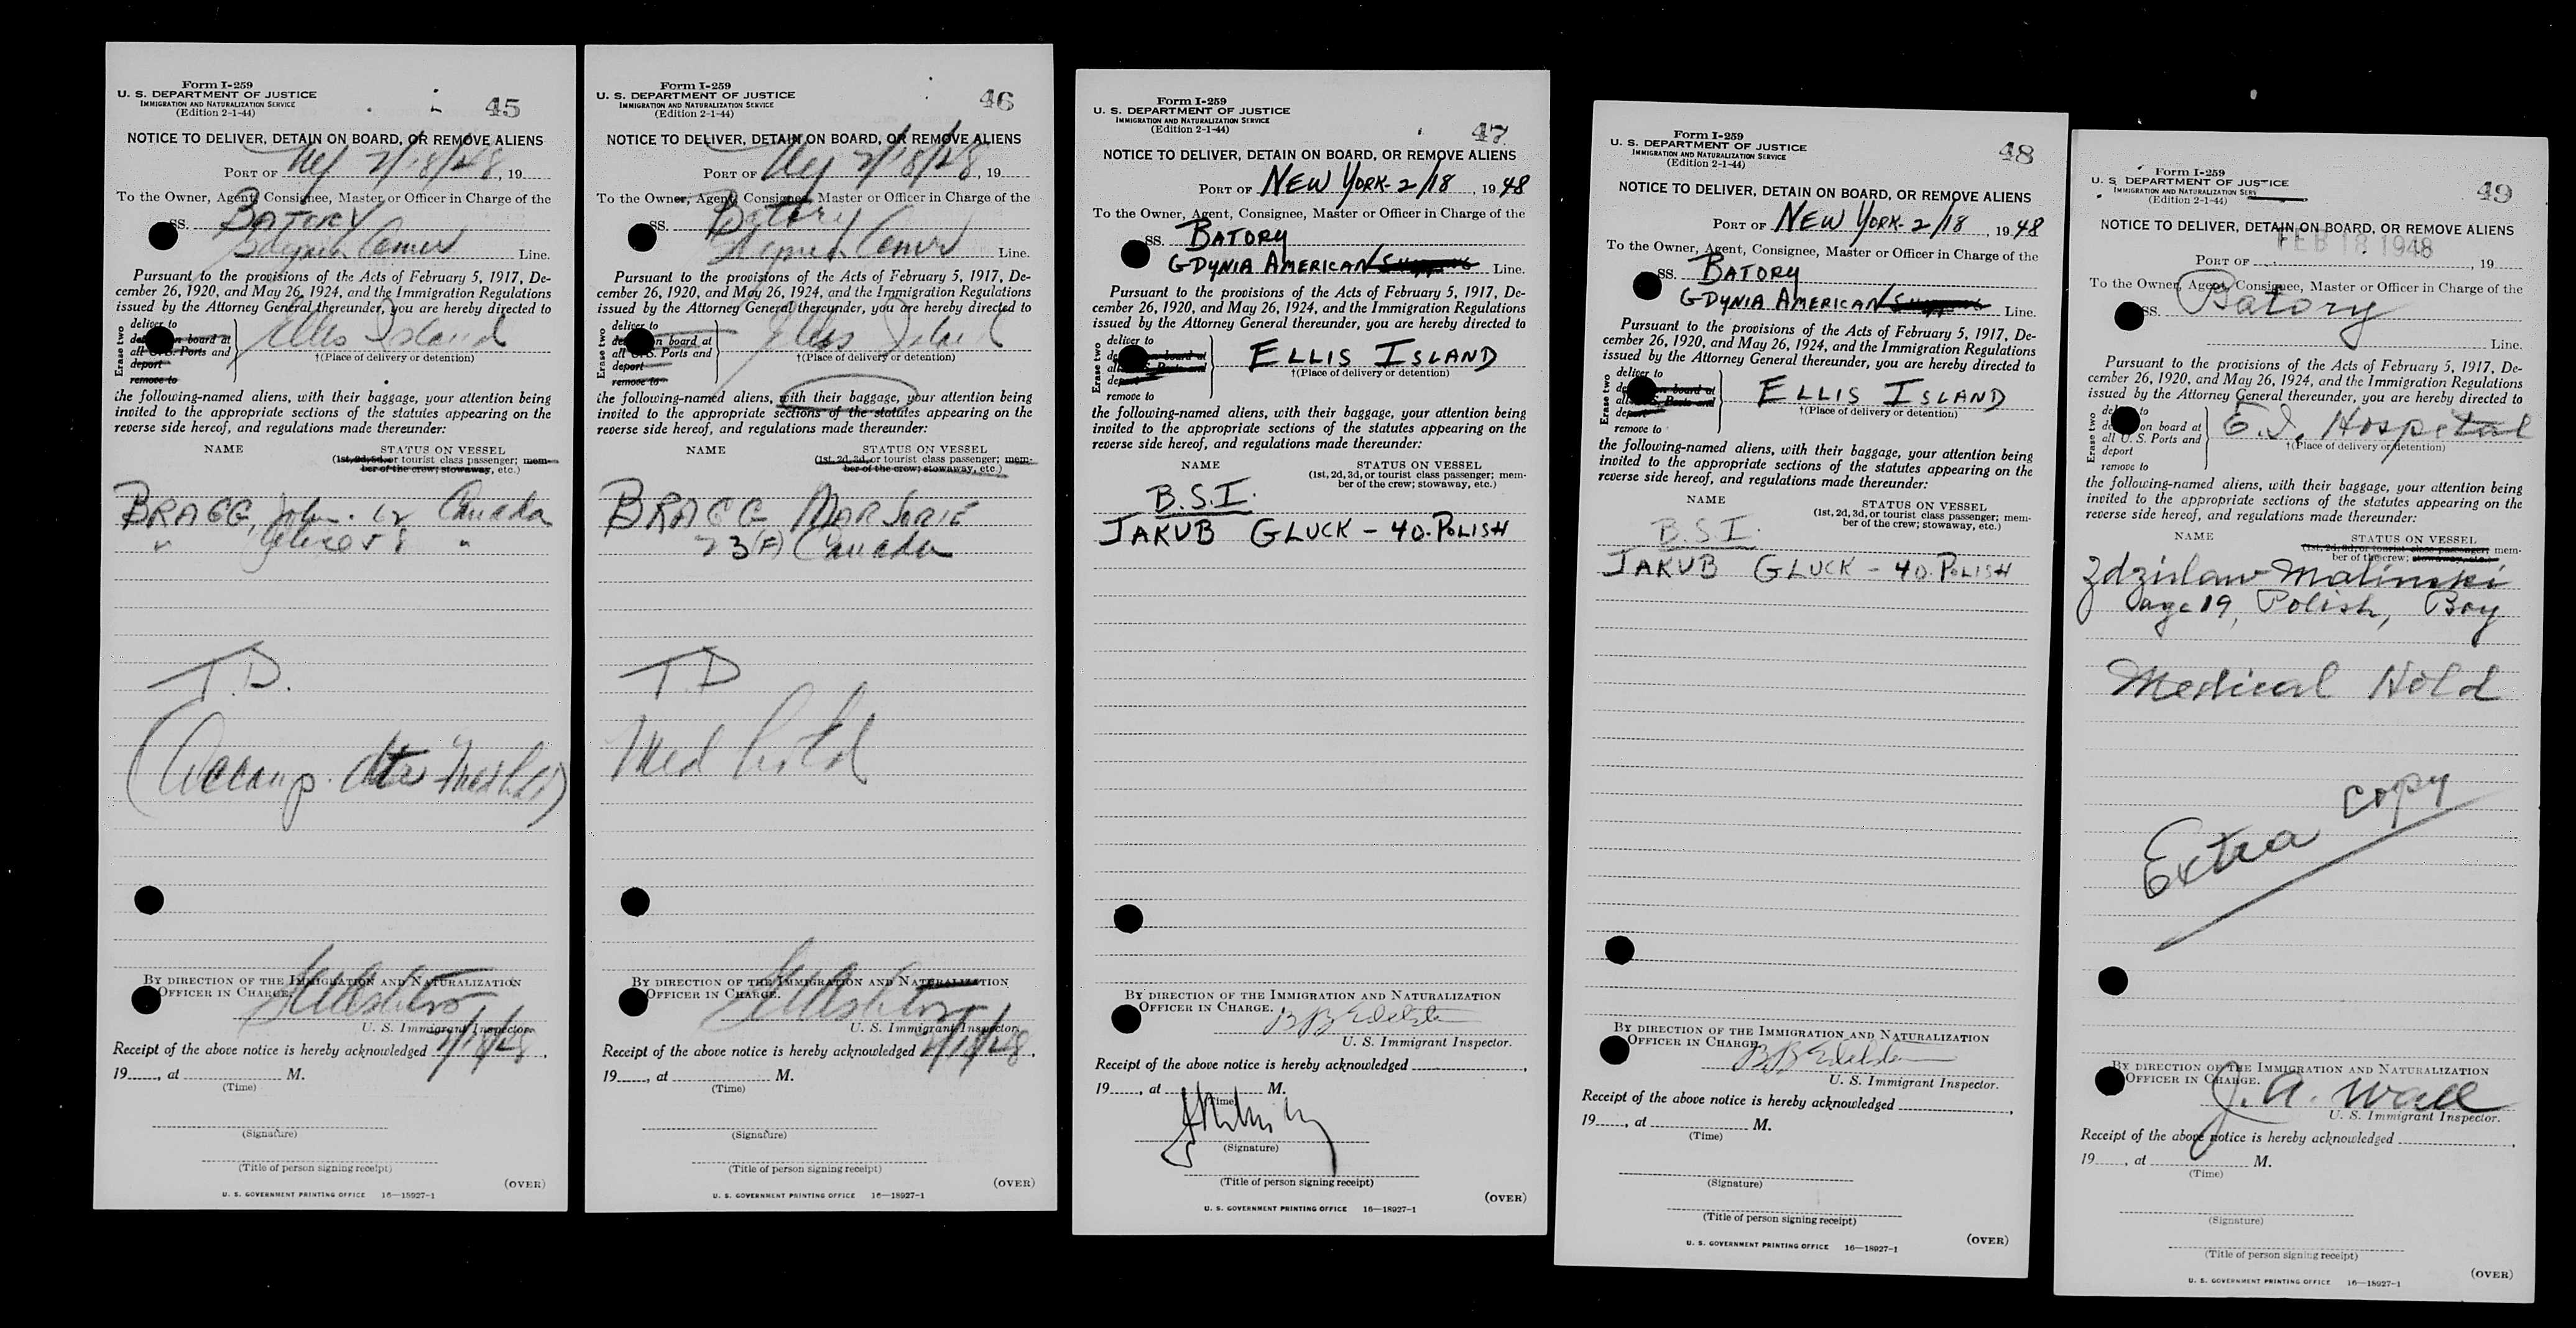 Form I-259
U. S. DEPARTMENT OF JUSTICE
IMMIGRATION AND NATURALIZATION SERVICE
(Edition 2-1-44)
45
NOTICE TO DELIVER, DETAIN ON BOARD, OR REMOVE ALIENS
PORT OF NY 2/18/48, 19
To the Owner, Agent, Consignee, Master or Officer in Charge of the
SS. BATORY
Line.
Pursuant to the provisions of the Acts of February 5, 1917, De-
cember 26, 1920, and May 26, 1924, and the Immigration Regulations
issued by the Attorney General thereunder, you are hereby directed to
Erase two
deliver to
on board at
all U. S. Ports and
deport
remove to
Ellis Island
†(Place of delivery or detention)
the following-named aliens, with their baggage, your attention being
invited to the appropriate sections of the statutes appearing on the
reverse side hereof, and regulations made thereunder:
NAME STATUS ON VESSEL
(1st, 2d, 3d, or tourist class passenger; mem-
ber of the crew; stowaway, etc.)
BRAGG, John Canada
" "
T.D.
(Accomp. Med hold)
BY DIRECTION OF THE IMMIGRATION AND NATURALIZATION
OFFICER IN CHARGE.
U. S. Immigrant Inspector.
Receipt of the above notice is hereby acknowledged 2/18/48,
19, at M.
(Time)
(Signature)
(Title of person signing receipt)
(OVER)
U. S. GOVERNMENT PRINTING OFFICE 16—18927-1
Form I-259
U. S. DEPARTMENT OF JUSTICE
IMMIGRATION AND NATURALIZATION SERVICE
(Edition 2-1-44)
46
NOTICE TO DELIVER, DETAIN ON BOARD, OR REMOVE ALIENS
PORT OF NY 2/18/48, 19
To the Owner, Agent, Consignee, Master or Officer in Charge of the
SS. Batory
Line.
Pursuant to the provisions of the Acts of February 5, 1917, De-
cember 26, 1920, and May 26, 1924, and the Immigration Regulations
issued by the Attorney General thereunder, you are hereby directed to
Erase two
deliver to
on board at
all U. S. Ports and
deport
remove to
Ellis Island
†(Place of delivery or detention)
the following-named aliens, with their baggage, your attention being
invited to the appropriate sections of the statutes appearing on the
reverse side hereof, and regulations made thereunder:
NAME STATUS ON VESSEL
(1st, 2d, 3d, or tourist class passenger; mem-
ber of the crew; stowaway, etc.)
BRAGG MARJORIE
23 (F) Canada
T.D
Med hold
BY DIRECTION OF THE IMMIGRATION AND NATURALIZATION
OFFICER IN CHARGE.
U. S. Immigrant Inspector.
Receipt of the above notice is hereby acknowledged 2/18/48,
19, at M.
(Time)
(Signature)
(Title of person signing receipt)
(OVER)
U. S. GOVERNMENT PRINTING OFFICE 16—18927-1
Form I-259
U. S. DEPARTMENT OF JUSTICE
IMMIGRATION AND NATURALIZATION SERVICE
(Edition 2-1-44)
47
NOTICE TO DELIVER, DETAIN ON BOARD, OR REMOVE ALIENS
PORT OF NEW YORK - 2/18, 1948
To the Owner, Agent, Consignee, Master or Officer in Charge of the
SS. BATORY
GDYNIA AMERICAN Line.
Pursuant to the provisions of the Acts of February 5, 1917, De-
cember 26, 1920, and May 26, 1924, and the Immigration Regulations
issued by the Attorney General thereunder, you are hereby directed to
Erase two
deliver to
on board at
all U. S. Ports and
deport
remove to
ELLIS ISLAND
†(Place of delivery or detention)
the following-named aliens, with their baggage, your attention being
invited to the appropriate sections of the statutes appearing on the
reverse side hereof, and regulations made thereunder:
NAME STATUS ON VESSEL
(1st, 2d, 3d, or tourist class passenger; mem-
ber of the crew; stowaway, etc.)
B.S.I.
JAKUB GLUCK - 40. POLISH
BY DIRECTION OF THE IMMIGRATION AND NATURALIZATION
OFFICER IN CHARGE.
U. S. Immigrant Inspector.
Receipt of the above notice is hereby acknowledged,
19, at M.
(Time)
(Signature)
(Title of person signing receipt)
(OVER)
U. S. GOVERNMENT PRINTING OFFICE 16—18927-1
Form I-259
U. S. DEPARTMENT OF JUSTICE
IMMIGRATION AND NATURALIZATION SERVICE
(Edition 2-1-44)
48
NOTICE TO DELIVER, DETAIN ON BOARD, OR REMOVE ALIENS
PORT OF NEW YORK - 2/18, 1948
To the Owner, Agent, Consignee, Master or Officer in Charge of the
SS. BATORY
GDYNIA AMERICAN Line.
Pursuant to the provisions of the Acts of February 5, 1917, De-
cember 26, 1920, and May 26, 1924, and the Immigration Regulations
issued by the Attorney General thereunder, you are hereby directed to
Erase two
deliver to
on board at
all U. S. Ports and
deport
remove to
ELLIS ISLAND
†(Place of delivery or detention)
the following-named aliens, with their baggage, your attention being
invited to the appropriate sections of the statutes appearing on the
reverse side hereof, and regulations made thereunder:
NAME STATUS ON VESSEL
(1st, 2d, 3d, or tourist class passenger; mem-
ber of the crew; stowaway, etc.)
B.S.I.
JAKUB GLUCK - 40. POLISH
BY DIRECTION OF THE IMMIGRATION AND NATURALIZATION
OFFICER IN CHARGE.
U. S. Immigrant Inspector.
Receipt of the above notice is hereby acknowledged,
19, at M.
(Time)
(Signature)
(Title of person signing receipt)
(OVER)
U. S. GOVERNMENT PRINTING OFFICE 16—18927-1
Form I-259
U. S. DEPARTMENT OF JUSTICE
IMMIGRATION AND NATURALIZATION SERV
(Edition 2-1-44)
49
NOTICE TO DELIVER, DETAIN ON BOARD, OR REMOVE ALIENS
FEB 18 1948
PORT OF, 19
To the Owner, Agent, Consignee, Master or Officer in Charge of the
SS. Batory
Line.
Pursuant to the provisions of the Acts of February 5, 1917, De-
cember 26, 1920, and May 26, 1924, and the Immigration Regulations
issued by the Attorney General thereunder, you are hereby directed to
Erase two
deliver to
on board at
all U. S. Ports and
deport
remove to
E.I. Hospital
†(Place of delivery or detention)
the following-named aliens, with their baggage, your attention being
invited to the appropriate sections of the statutes appearing on the
reverse side hereof, and regulations made thereunder:
NAME STATUS ON VESSEL
(1st, 2d, 3d, or tourist class passenger; mem-
ber of the crew; stowaway, etc.)
Zdzislaw Malinski
age 19, Polish, Boy
Medical Hold
Extra copy
BY DIRECTION OF THE IMMIGRATION AND NATURALIZATION
OFFICER IN CHARGE.
J. A. Wall
U. S. Immigrant Inspector.
Receipt of the above notice is hereby acknowledged,
19, at M.
(Time)
(Signature)
(Title of person signing receipt)
(OVER)
U. S. GOVERNMENT PRINTING OFFICE 16—18927-1